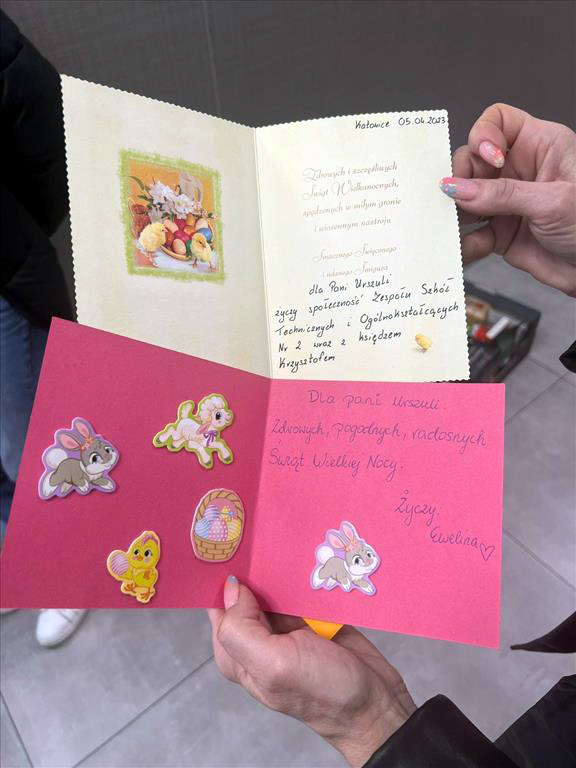 Katowice 05.04.2023
Zdrowych i szczęśliwych
Świąt Wielkanocnych,
spędzonych w miłym gronie
i wiosennym nastroju
Smacznego Święconego
i udanego Śmigusa
dla Pani Urszuli
życzy społeczność Zespołu Szkół
Technicznych i Ogólnokształcących
Nr 2 wraz z księdzem
Krzysztofem
Dla pani Urszuli.
Zdrowych, pogodnych, radosnych
Swiąt Wielkiej Nocy.
Życzy:
Ewelina♡